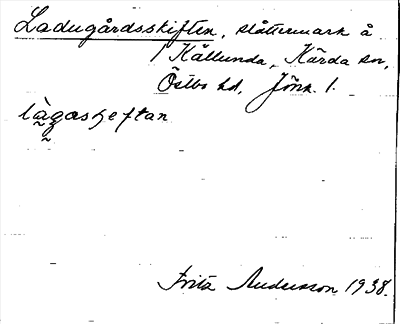 Ladugårdsskiften, slåttermark å
/ Kållunda, Kärda sn,
Östbo hd, Jönk. l.
làgasheftan
Fritz Andersson 1938.